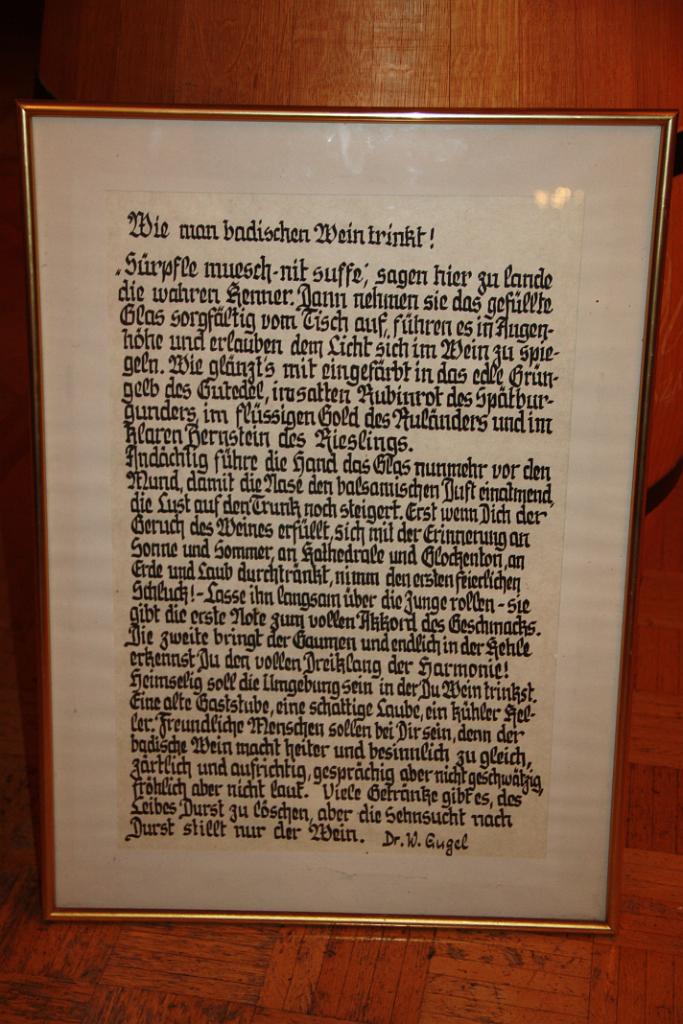 Wie man badischen Wein trinkt!
„Sürpfle muesch-nit suffe‚ sagen hier zu lande
die wahren Kenner. Dann nehmen sie das gefüllte
Glas sorgfältig vom Tisch auf, führen es in Augen-
höhe und erlauben dem Licht sich im Wein zu spie-
geln. Wie glänzt's mit eingefärbt in das edle Grün-
gelb des Gutedel, im satten Rubinrot des Spätbur-
gunders, im flüssigen Gold des Ruländers und im
klaren Bernstein des Rieslings.
Andächtig führe die Hand das Glas nunmehr vor den
Mund, damit die Nase den balsamischen Duft einatmend,
die Lust auf den Trunk noch steigert. Erst wenn Dich der
Geruch des Weines erfüllt, sich mit der Erinnerung an
Sonne und Sommer, an Kathedrale und Glockenton, an
Erde und Laub durchtränkt, nimm den ersten feierlichen
Schluck! - Lasse ihn langsam über die Zunge rollen - sie
gibt die erste Note zum vollen Akkord des Geschmacks.
Die zweite bringt der Gaumen und endlich in der Kehle
erkennst Du den vollen Dreiklang der Harmonie!
Heimselig soll die Umgebung sein in der Du Wein trinkst.
Eine alte Gaststube, eine schattige Laube, ein kühler Kel-
ler. Freundliche Menschen sollen bei Dir sein, denn der
badische Wein macht heiter und besinnlich zu gleich,
zärtlich und aufrichtig, gesprächig aber nicht geschwätzig,
fröhlich aber nicht laut. Viele Getränke gibt es, des
Leibes Durst zu löschen, aber die Sehnsucht nach
Durst stillt nur der Wein. Dr. W. Gugel